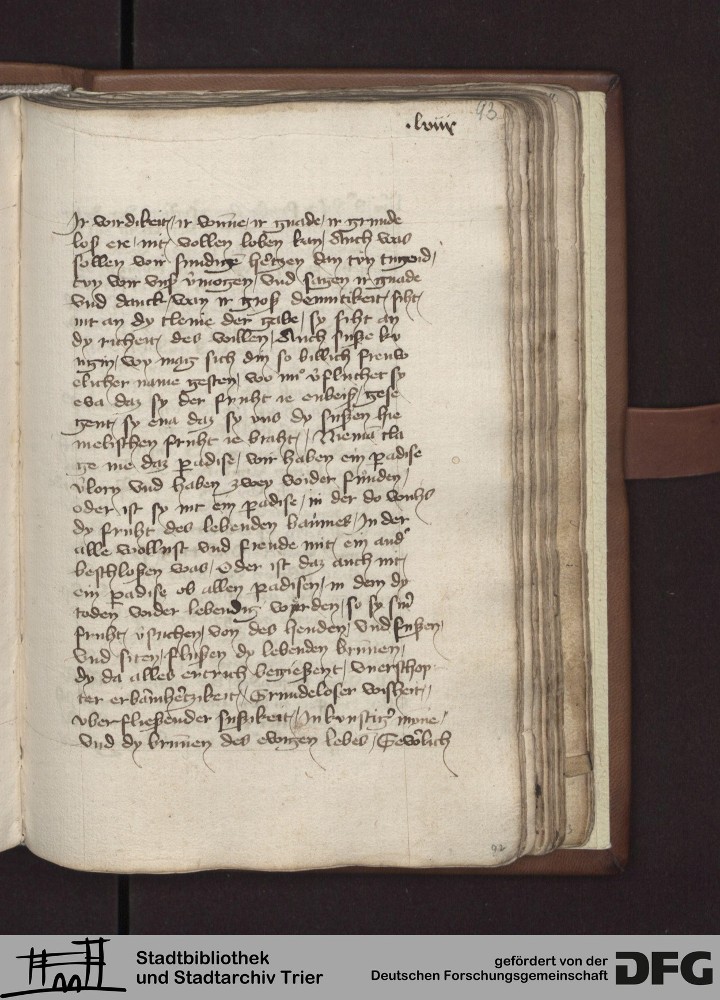 .lviiij
93
Jr wirdikeit / ir wunne / ir gnade / ir grunde
loß ere / nit vollen loben kan / Auch was
sollen wir sundige hertzen dan tun tugend /
tun wir vnß v̓mogen / vnd sagen ir gnade
vnd danck / wan ir groß demutikeit / siht /
nit an dy cleine der gabe / sy siht an
dy richeit / des willen / Auch suße ku
nigin / wy mag sich din so billich freuw
elicher name gesten / wo v̓fluchet sy
eva daz sy der fruht ie enbeiß / gese
gent / sy eua daz sy vns dy sußen hie
melischen fruht ie braht / Niema cla
ge me daz padise / wir haben ein padise
v̓lorn vnd haben zwey wider funden /
oder ist sy nit ein padise / in der do wuchs
dy fruht des lebenden baumes / In der
alle wollust vnd freude mit / ein and̓
beschloßen was / Oder ist daz auch nit /
ein padise ob allen padisen / in dem dy
toden wider lebendig worden / so sy sin̓
fruht / v̓suchen / von des henden / vnd fußen /
vnd siten / flußen dy lebenden brunen /
dy da alles ertrich begießent / vnerschop
ter erbamhertzikeit / Grundeloser wisheit /
vberfließender sußikeit / Inbrunstig̓ myne /
vnd dy brunen des ewigen lebes / Gewerlich
92
Stadtbibliothek
und Stadtarchiv Trier
gefördert von der
Deutschen Forschungsgemeinschaft
DFG